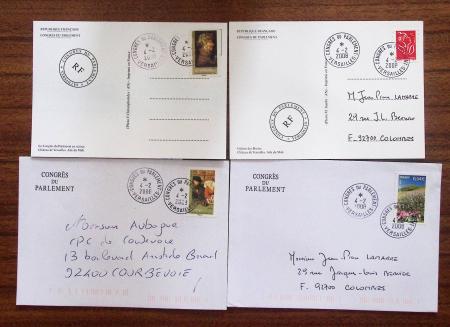 RÉPUBLIQUE FRANÇAISE
CONGRÈS DU PARLEMENT
CONGRÈS DU PARLEMENT
RF
CONGRÈS DU PARLEMENT
4-2
VERSAILLES
Le Congrès du Parlement en séance
Château de Versailles. Aile du Midi
RÉPUBLIQUE FRANÇAISE
CONGRÈS DU PARLEMENT
CONGRÈS DU PARLEMENT
4-2
2008
VERSAILLES
CONGRÈS DU PARLEMENT
4-2
2008
VERSAILLES
CONGRÈS DU PARLEMENT
RF
M. Jean Pierre LAMARRE
29 rue J.L.
F-92700 COLOMBES
Château de Versailles. Aile du Midi
CONGRÈS
DU
PARLEMENT
CONGRÈS DU PARLEMENT
4-2
2008
VERSAILLES
Monsieur
13 boulevard Aristide Briand
92400 COURBEVOIE
CONGRÈS
DU
PARLEMENT
CONGRÈS DU PARLEMENT
4-2
2008
VERSAILLES
0,54€
CONGRÈS DU PARLEMENT
4-2
2008
VERSAILLES
Monsieur Jean Pierre LAMARRE
29 rue Jacques-Louis
F. 92700 COLOMBES